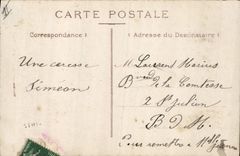 CARTE POSTALE
Correspondance
Adresse du Destinataire
Une caresse
Siméon
M. Laurens Marius
Bard de la Comtesse
2 St Julien
B D R.
Pour remettre à Mlle